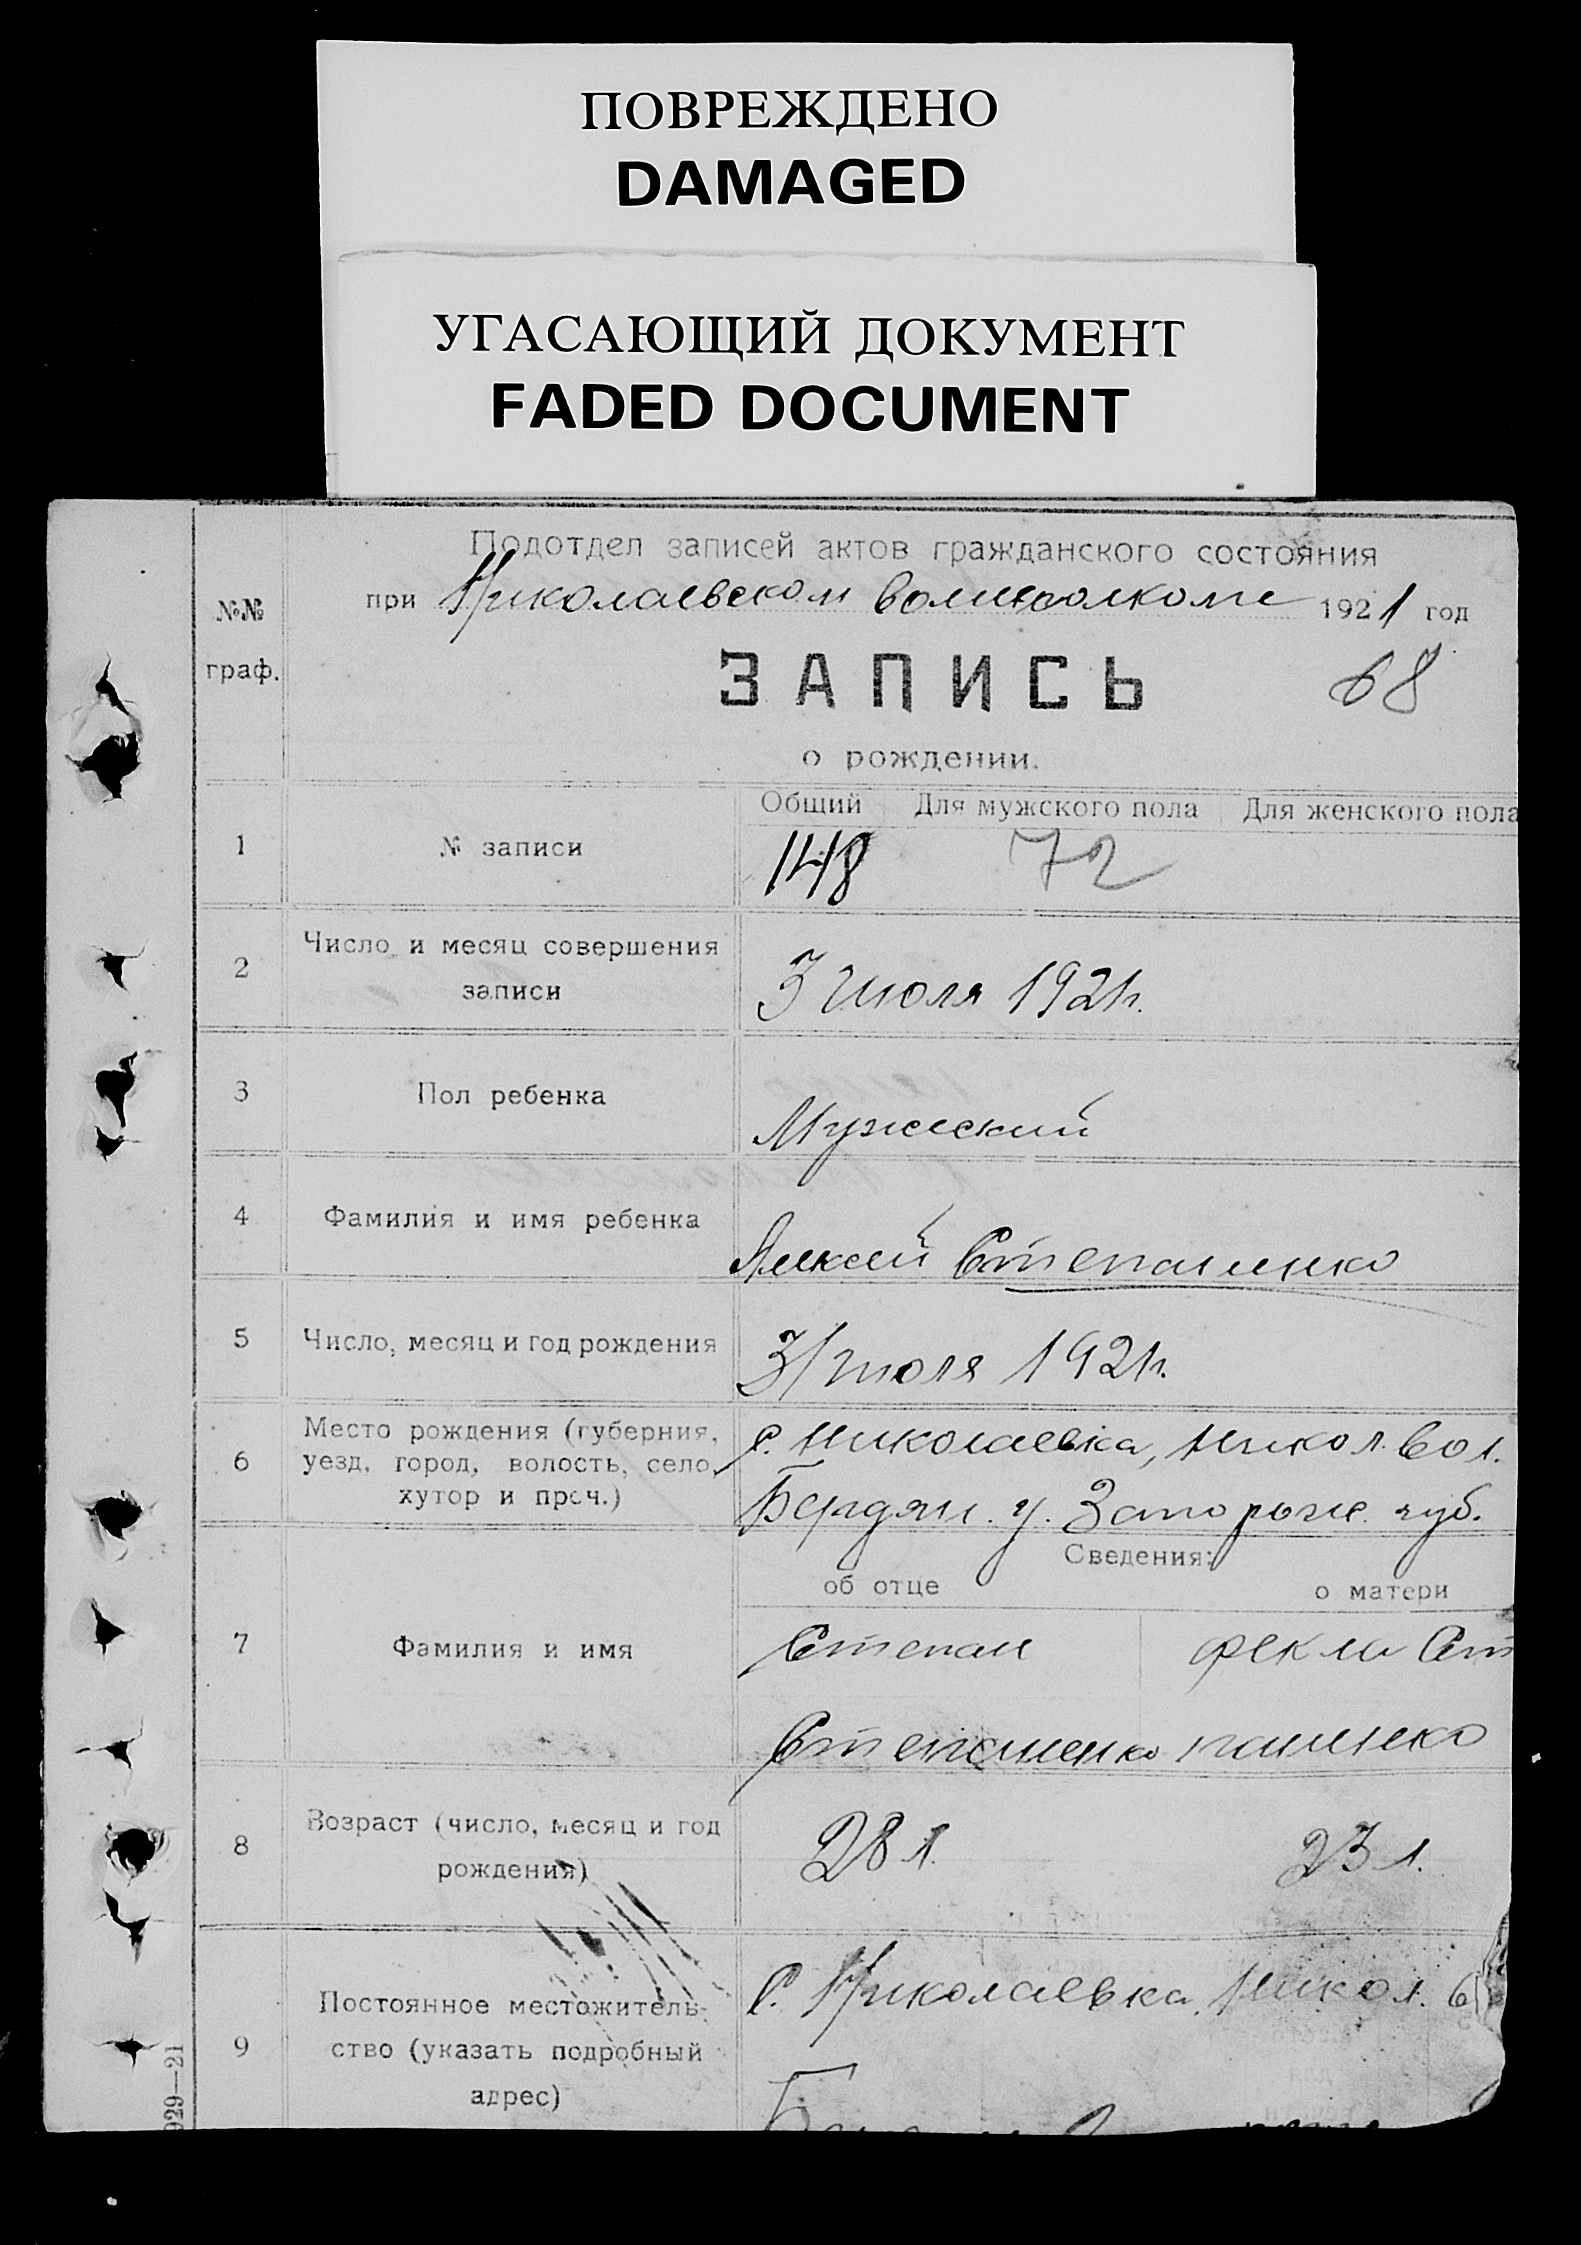 ПОВРЕЖДЕНО
DAMAGED
УГАСАЮЩИЙ ДОКУМЕНТ
FADED DOCUMENT
Подотдел записей актов гражданского состояния
№№ граф.
при Николаевском 1921 год
ЗАПИСЬ
68
о рождении.
Общий Для мужского пола Для женского пола
1 № записи 148 72
2 Число и месяц совершения
записи
3 июля 1921 г.
3 Пол ребенка
Мужеский
4 Фамилия и имя ребенка
Алексей Степаненко
5 Число, месяц и год рождения
июля 1921 г.
6 Место рождения (губерния,
уезд, город, волость, село,
хутор и проч.)
с. Николаевка, Никол. вол.
Бердян. у. Запорож. губ.
Сведения:
об отце о матери
7 Фамилия и имя
Степан Фекла Сте
Степаненко паненко
8 Возраст (число, месяц и год
рождения)
28 л. 23 л.
9 Постоянное местожитель-
ство (указать подробный
адрес)
С. Николаевка, Никол.
929—21